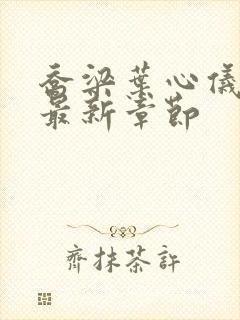 乔梁葉心儀
最新章節
齊抹茶許